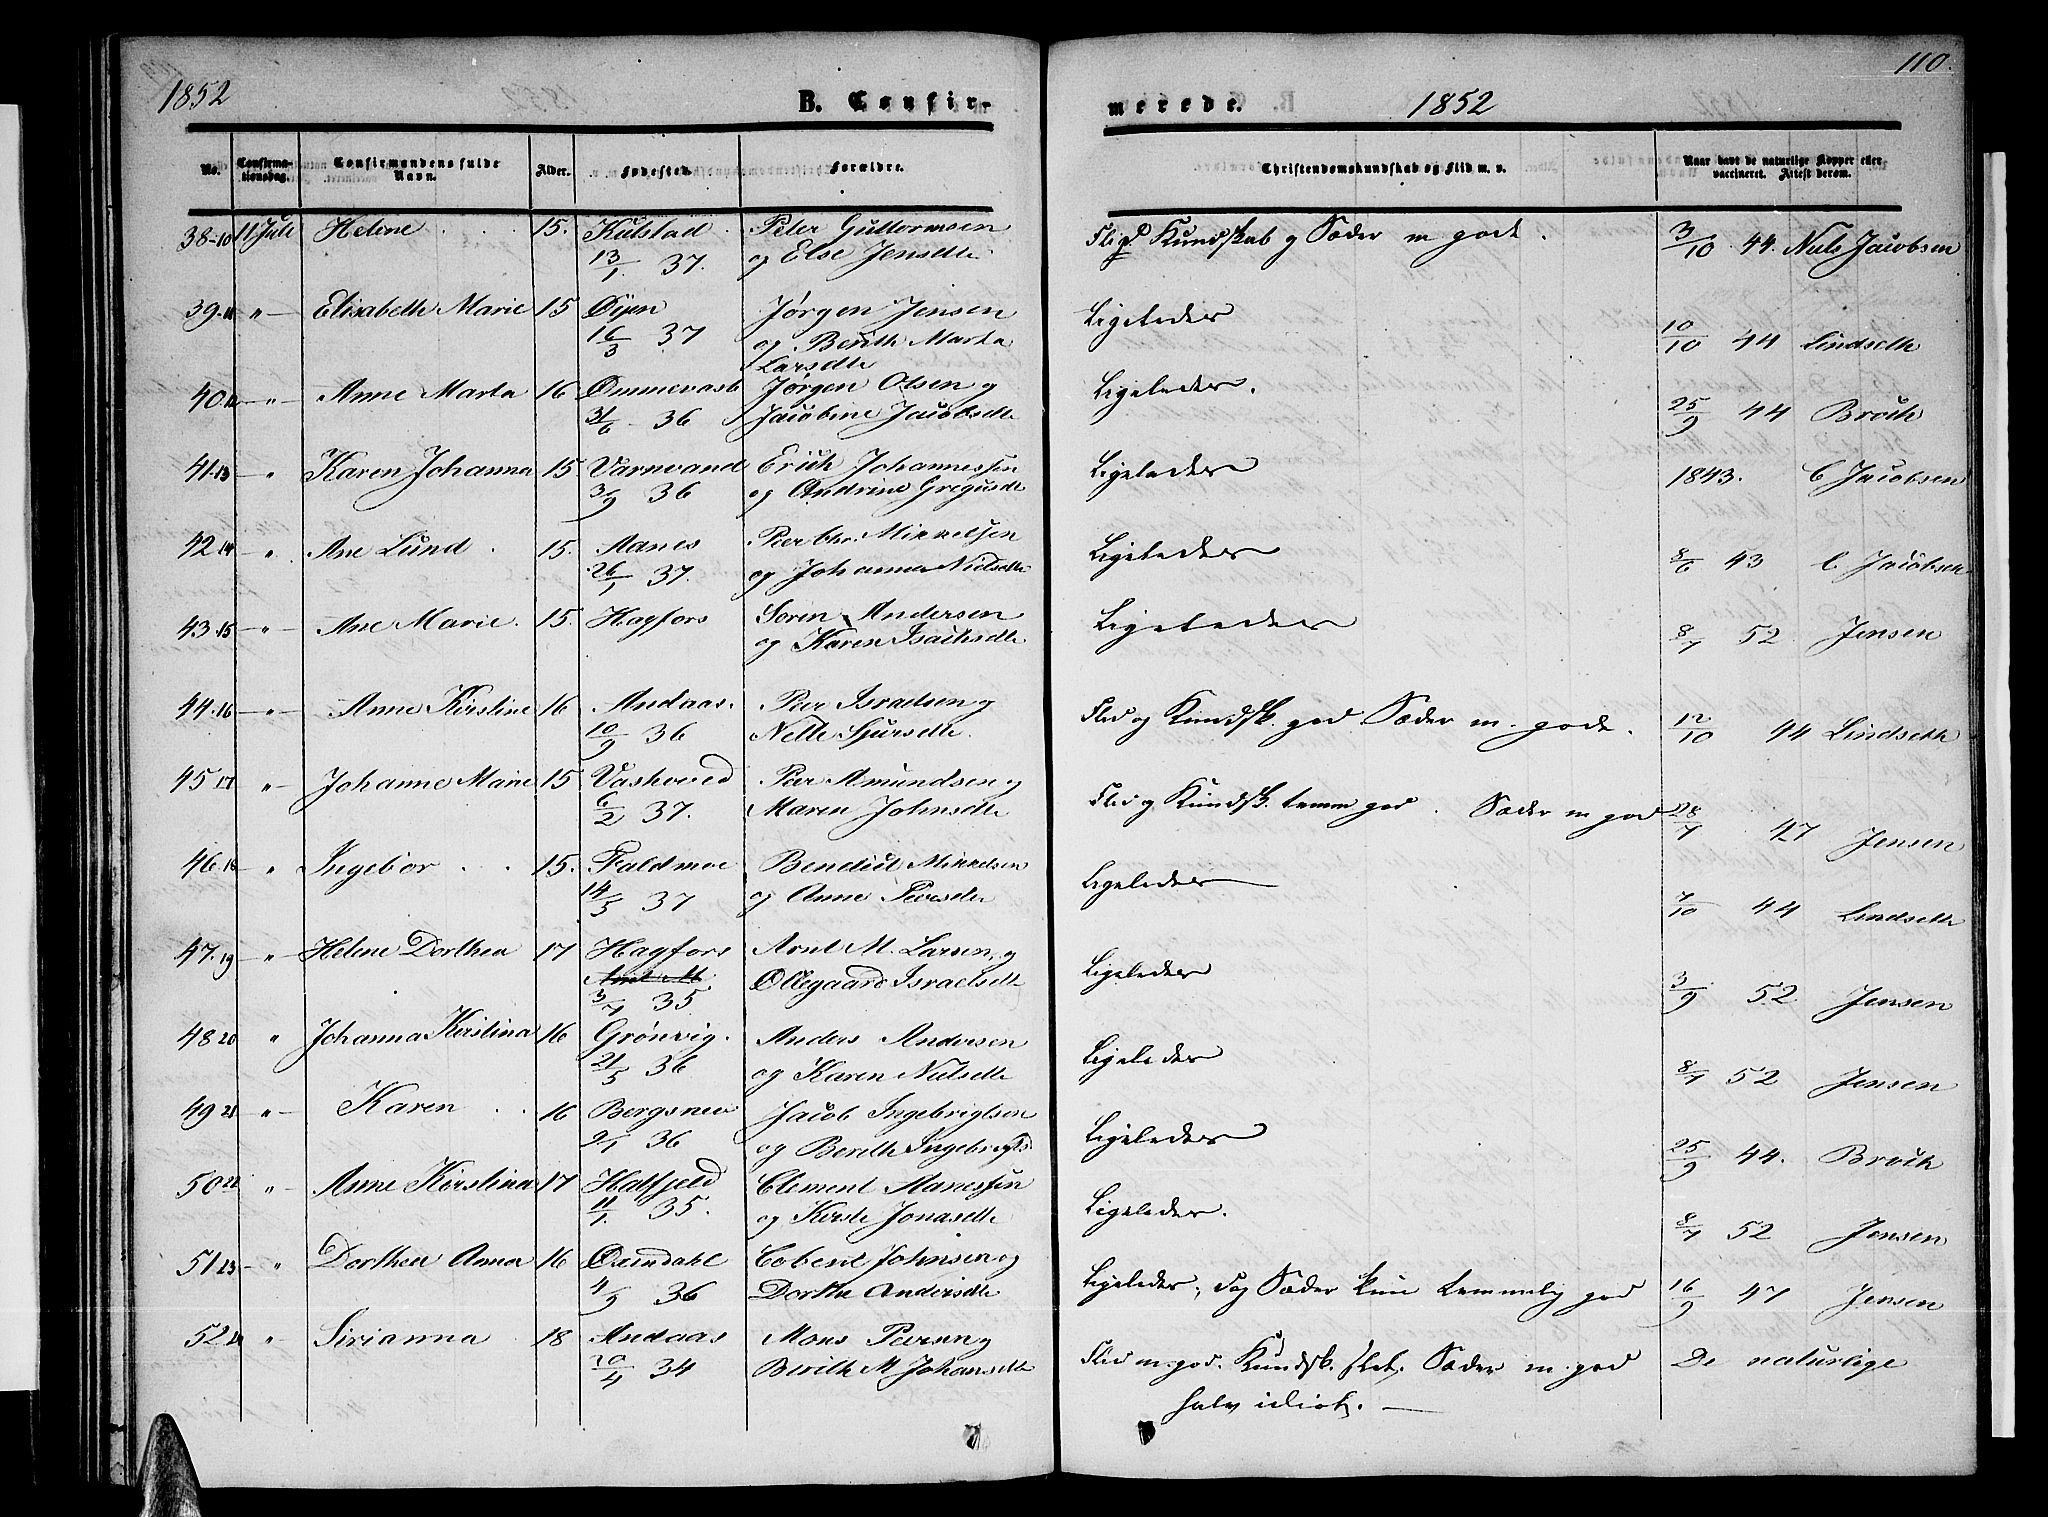 110.
1852 B. Confir- merede. 1852
No. Confirma-tionsdag. Confirmandens fulde Navn. Alder. Fødested. Forældre. Christendomskundskab og Flid m. v. Naar havt de naturlige Kopper eller vaccineret. Attest derom.
38-10 11 Juli Helene 15. Kulstad Peter Guttormsen Flid Kundskab og Sæder m godt. 3/10 44. Niels Jacobsen
13/1. 37. og Else Jensdtr
39-11 " Elisabeth Marie 15 Øijen Jørgen Jensen Ligeledes
16/3 37 og Berith Marta 10/10 44 Lindseth
Larsdtr
40 12 " Anne Marta 16 Ømmervasb Jørgen Olsen og Ligeledes.
31/6 36 Jacobine Jacobsdtr 25/9 44 Broch
41-13 " Karen Johanna 15 Varnvand Erich Johannessen Ligeledes 1843. C Jacobsen
3/9 36 og Andrine Gregusdtr
42-14 " Ane Lund 15. Aanes Peer Chr. Mikkelsen Ligeledes
26/1 37. og Johanna Nielsdtr 8/6 43 C Jacobsen
43 15 " Ane Marie 15. Hagfors Soren Andersen Ligeledes
og Karen Isachsdtr 8/7 52 Jensen
44-16 " Anne Kirstine 16 Andaas. Peer Israelsen og Flid og Kundsk. god Sæder m. gode. 12/10 44 Lindseth
10/9 36 Nelle Sjursdtr.
45 17 " Johanne Marie 15 Vashoved Peer Amundsen og Flid og Kundsk. temm god. Sæder m god
6/2 37. Maren Johnsdtr 28/7 47 Jensen
46-18 " Ingebor 15. Faldmoe Benedict Mikkelsen Ligeledes
14/5 37 og Anne Peersdtr 7/10 44 Lindseth
47.19 " Helene Dorthea 17 Hagfors Arnt M. Larsen, og Ligeledes
Arnt M. Ollegaard Israelsdtr 3/9 52 Jensen
3/7 35
48 20 " Johanna Kirstina 16 Grönvig. Anders Andersen Ligeledes
21/5 36 og Karen Nielsdtr 8/7 52 Jensen
49 21 " Karen 16 Bergsnev Jacob Ingebrigtsen Ligeledes
2/1 36 og Berith Ingebrigtsd 25/9 44. Broch
50 22 " Anne Kirstina 17 Hatfjeld Clement Aanessen Ligeledes.
11/1. 35. og Kirste Jonasdtr 8/7 52 Jensen
51 23 " Dorthea Anna 16 Øxendahl Cobent Johnsen og Ligeledes, dog Sæder kun temmelig god 16/9 47 Jensen
4/9 36 Dorthe Andersdtr
52 24 " Sirianna 18 Andaas Mons Peersen og Flid m. god. Kundsk. slet. Sæder m god De naturlige
20/4 34 Berith M Johansdtr halv idiot.